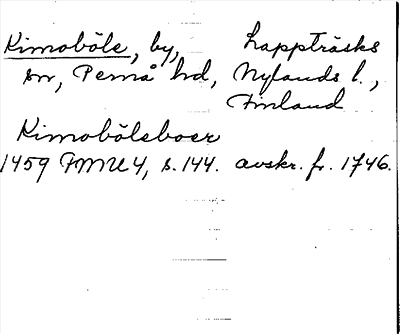 Kimoböle, by, Lappträsks
sn, Pernå hd, Nylands l.,
Finland
Kimobölsboer
1459 FMU 4, s. 144. avskr. fr. 1746.